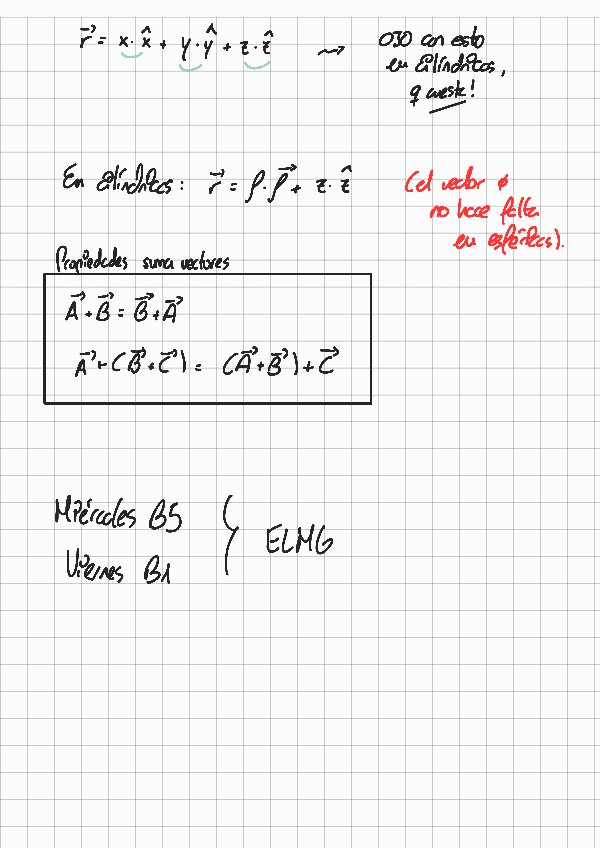 r⃗ = x·x̂ + y·ŷ + z·ẑ ⇝ OJO con esto
en cilíndricas,
q cueste!
En cilíndricas: r⃗ = ρ·ρ⃗ + z·ẑ (el vector φ
no hace falta
en esféricas).
Propiedades suma vectores
A⃗ + B⃗ = B⃗ + A⃗
A⃗ + (B⃗ + C⃗) = (A⃗ + B⃗) + C⃗
Miércoles B5
Viernes B1
} ELMG